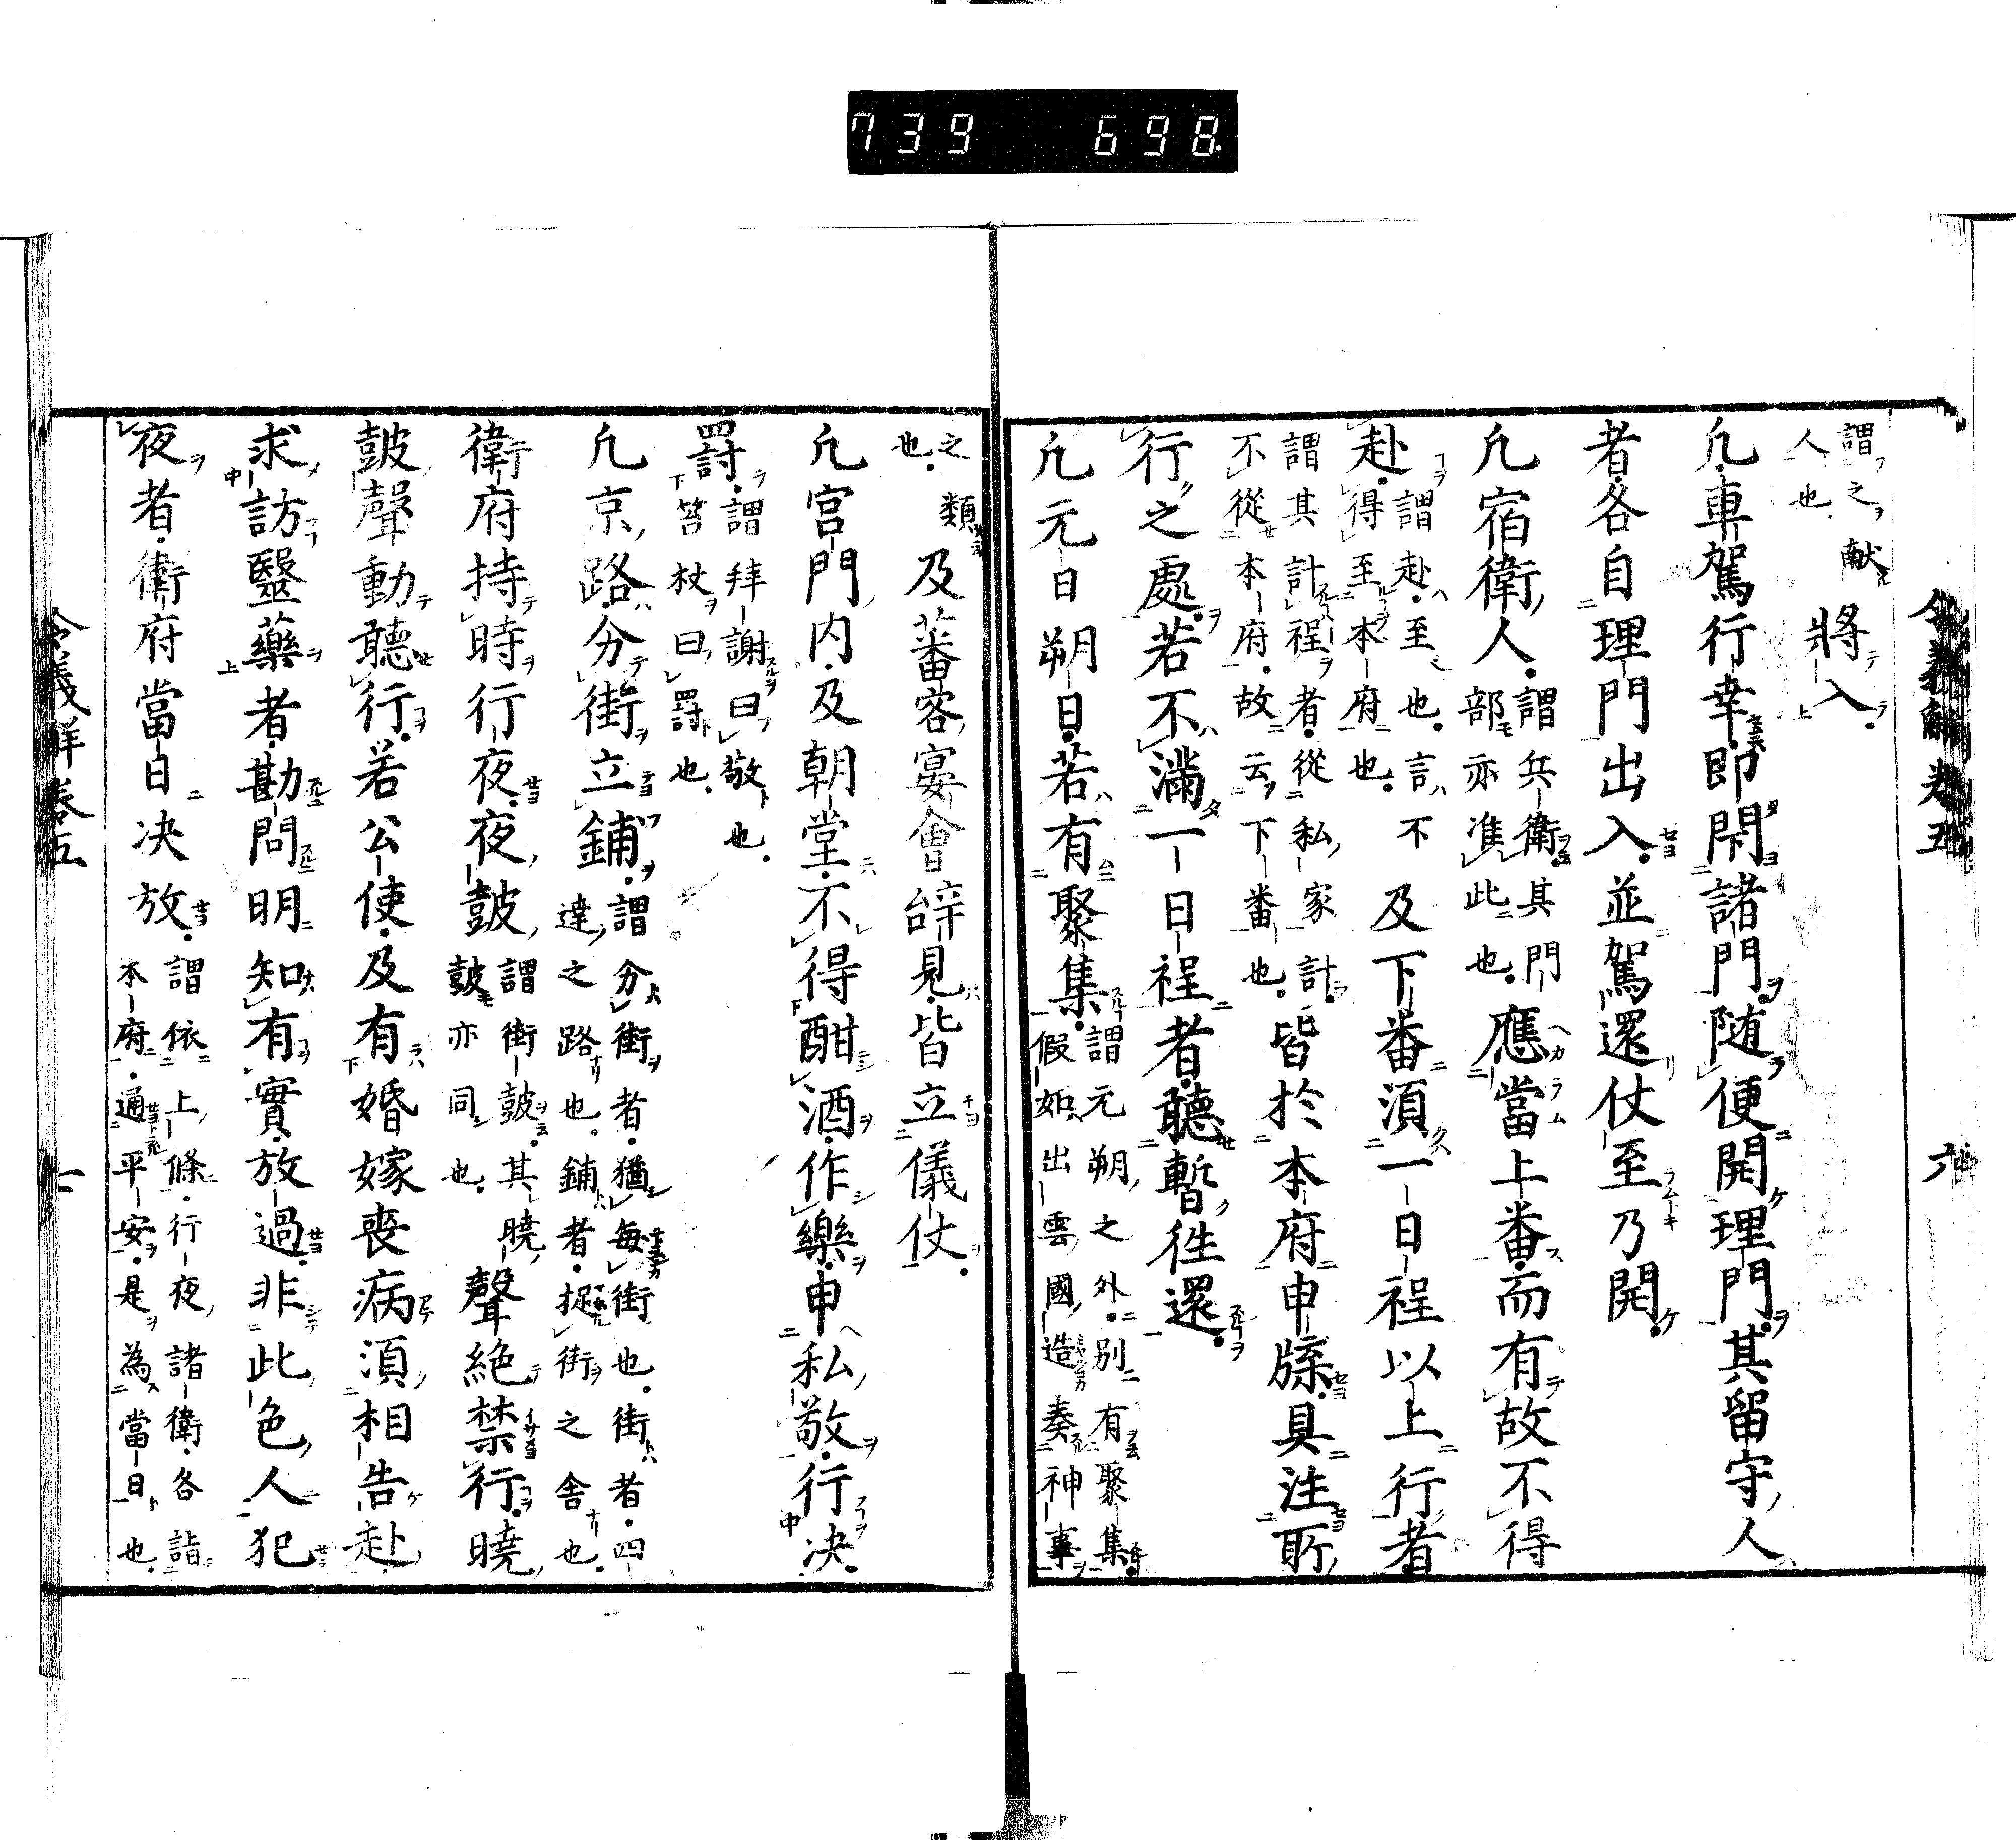 739 698
令義解卷五 六
謂之献
人也 將入
凢車駕行幸即閇諸門随便開理門其留守人
者各自理門出入並駕還仗至乃開
凢宿衛人謂兵衛其門
部亦准此也應當上番而有故不得
赴謂赴至也言不
得至本府也及下番湏一日程以上行者
謂其計程者從私家計
不從本府故云下番也皆於本府申牒具注所
行之處若不滿一日程者聽暫徃還
凢元日朔日若有聚集謂元朔之外別有聚集
假如出雲國造奏神事
之類
也及蕃客宴會辝見皆立儀仗
凢宮門内及朝堂不得酣酒作樂申私敬行决
罸謂拜謝曰敬也
笞杖曰罸也
凢京路分街立鋪謂分街者猶每街也街者四
達之路也鋪者捉街之舍也
衛府持時行夜夜鼓謂街鼓其曉
鼓亦同也聲絶禁行曉
鼓聲動聽行若公使及有婚嫁喪病湏相告赴
求訪毉藥者勘問明知有實放過非此色人犯
夜者衛府當日决放謂依上條行夜諸衛各詣
本府通平安是為當日也
令義解卷五 七